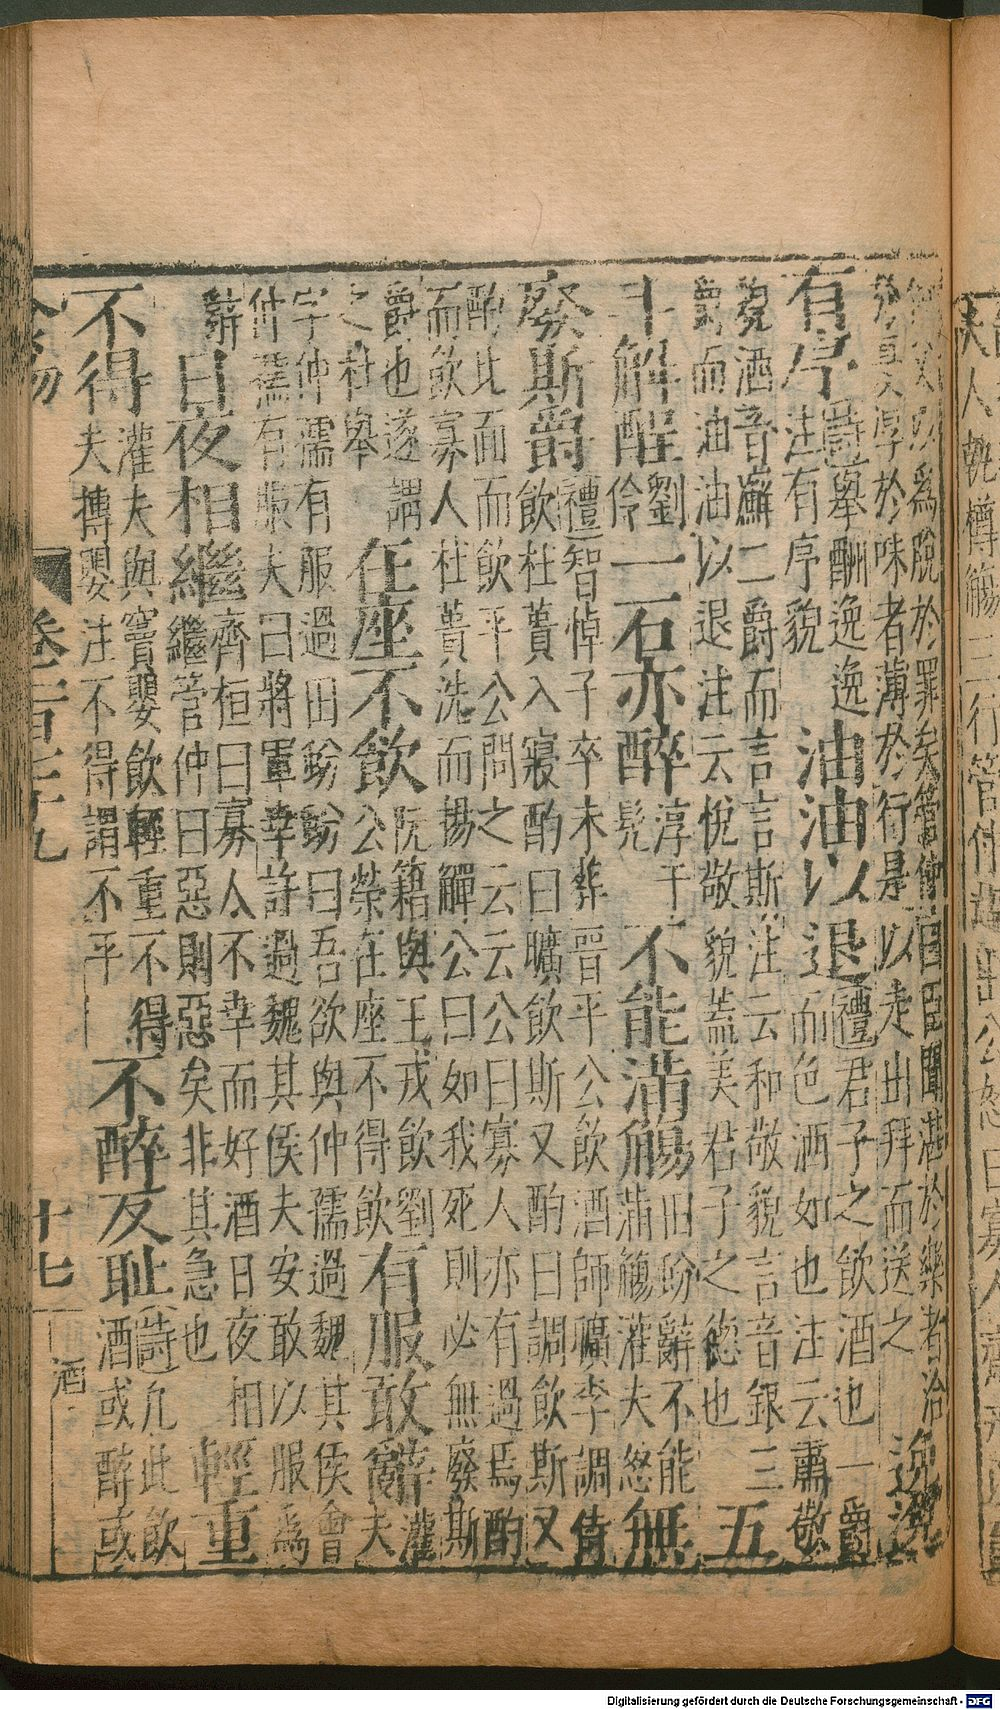 仲父以爲脫於罪矣管仲曰臣聞湛於樂者洽
於憂厚於味者薄於行是以走出拜而送之
逸逸
有序
詩舉酬逸逸
注有序貌
油油以退
禮君子之飲酒也一爵
而色洒如也注云肅敬
貌洒音蘚二爵而言言斯注云和敬貌言音銀三
爵而油油以退注云悅敬貌蓋美君子之德也
五
斗解酲
劉
伶
一石亦醉
淳于
髡
不能滿觴
田蚡辭不能
滿觴灌夫怒
無
廢斯爵
禮智悼子卒未葬晉平公飲酒師曠李調侍
飲杜蕢入寢酌曰曠飲斯又酌曰調飲斯又
酌北面而飲平公問之云云公曰寡人亦有過焉酌
而飲寡人杜蕢洗而揚觶公曰如我死則必無廢斯
爵也遂謂
之杜舉
任座不飲
阮籍與王戎飲劉
公榮在座不得飲
有服敢辭
灌
夫
字仲孺有服過田蚡蚡曰吾欲與仲孺過魏其侯會
仲孺有服夫曰將軍幸許過魏其侯夫安敢以服爲
辭
日夜相繼
齊桓曰寡人不幸而好酒日夜相
繼管仲曰惡則惡矣非其急也
輕重
不得
灌夫與竇嬰飲輕重不得
夫摶嬰注不得謂不平
不醉反恥
詩凡此飲
酒或醉或
十七
酒
Digitalisierung gefördert durch die Deutsche Forschungsgemeinschaft - DFG